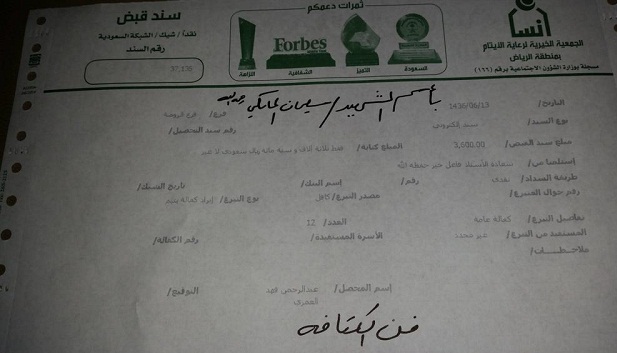 سند قبض
نقداً / شيك / الشبكة السعودية
رقم السند
37,136
ثمرات دعمكم
Forbes
النزاهة
الشفافية
التميز
السعودة
إنسان
الجمعية الخيرية لرعاية الأيتام
بمنطقة الرياض
مسجلة بوزارة الشؤون الاجتماعية برقم (١٦٦)
بأسم الشهيد / سليمان المالكي رحمه الله
التاريخ/ 1436/06/13
فرع/ فرع الروضة
نوع السند/ سند إلكتروني
رقم سند التحصيل/
مبلغ سند القبض/ 3,600.00
المبلغ كتابة/ فقط ثلاثة آلاف و ستة مائة ريال سعودي لا غير
إستلمنا من/ سعادة الأستاذ فاعل خير حفظه الله
طريقة السداد/ نقدي
رقم/
إسم البنك/
تاريخ الشيك/
رقم جوال المتبرع/
مصدر التبرع/ كافل
نوع التبرع/ إيراد كفالة يتيم
تفاصيل التبرع/ كفالة عامة
العدد/ 12
المستفيد من التبرع/ غير محدد
الأسرة المستفيدة/
رقم الكفالة/
ملاحظـــات/
إسم المحصل/ عبدالرحمن فهد العمري
التوقيع/
فن الكتافه